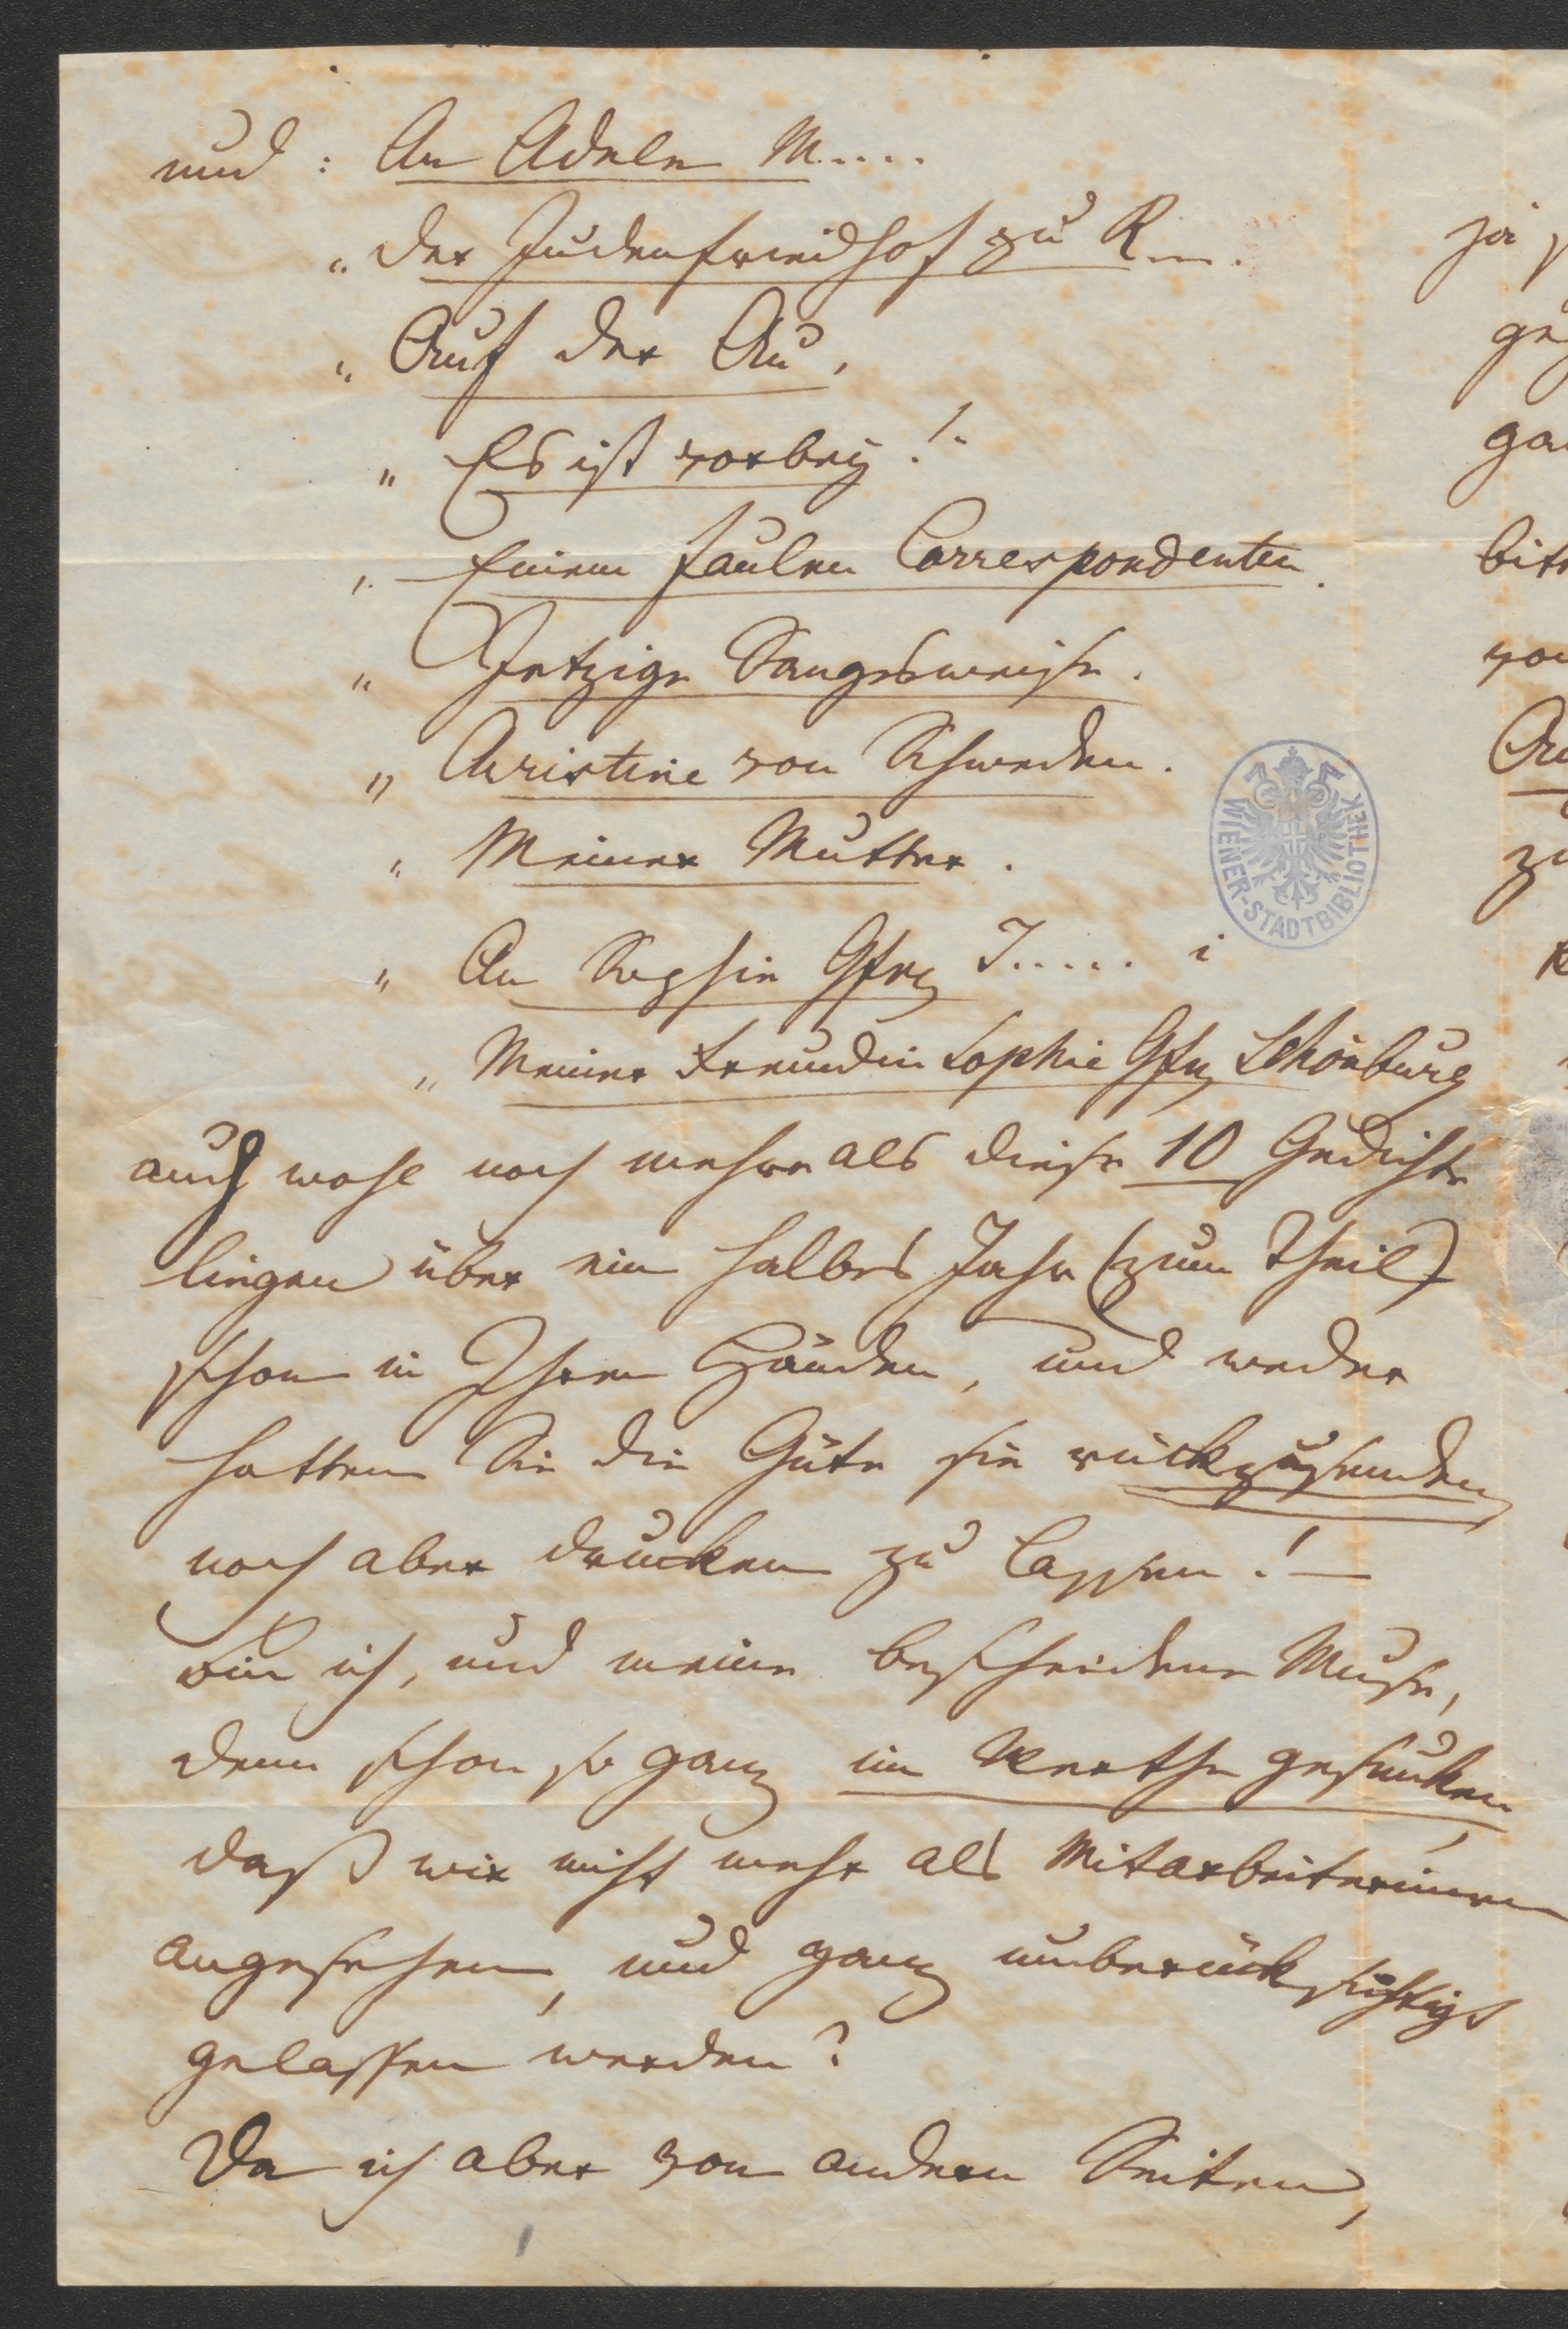 und : An Adele M.....
„ Der Judenfriedhof zu R....
„ Auf der Au,
„ Es ist vorbey!"
„ Einem faulen Correspondenten.
„ Jetzige Sangesweise.
„ Christine von Schweden.
„ Meiner Mutter.
WIENER-STADTBIBLIOTHEK
„ An Sophie Gfn J..... i
„ Meiner Freundin Sophie Gfn Schönburg
auch wohl noch mehre als diese 10 Gedichte
liegen über ein halbes Jahr (zum Theil)
schon in Ihren Händen, und weder
hatten Sie die Güte sie rückzusenden
noch aber drucken zu lassen! –
Bin ich, und meine bescheidene Muse,
denn schon so ganz im Werthe gesunken,
daß wir nicht mehr als Mitarbeiterinen
angesehen, und ganz unberücksichtigt
gelassen werden?
Da ich aber von andern Seiten,